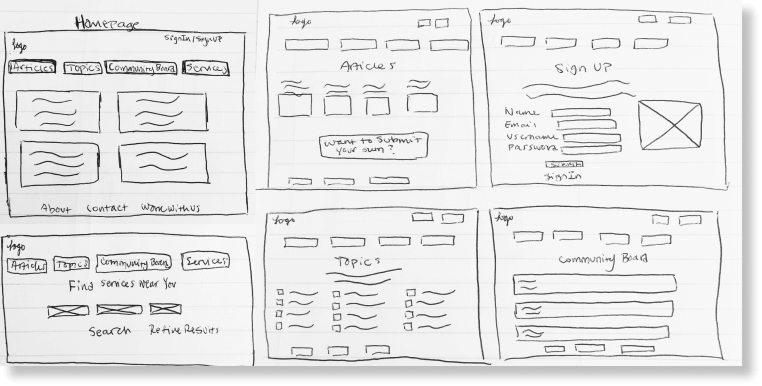 Homepage
logo
SignIn/SignUP
Articles Topics Community Board Services
About Contact Work With Us
logo
Articles
Want to Submit
your own?
logo
Sign UP
Name
Email
Username
Password
SignIn
logo
Articles Topics Community Board Services
Find Services Near You
Search Refine Results
logo
Topics
logo
Community Board